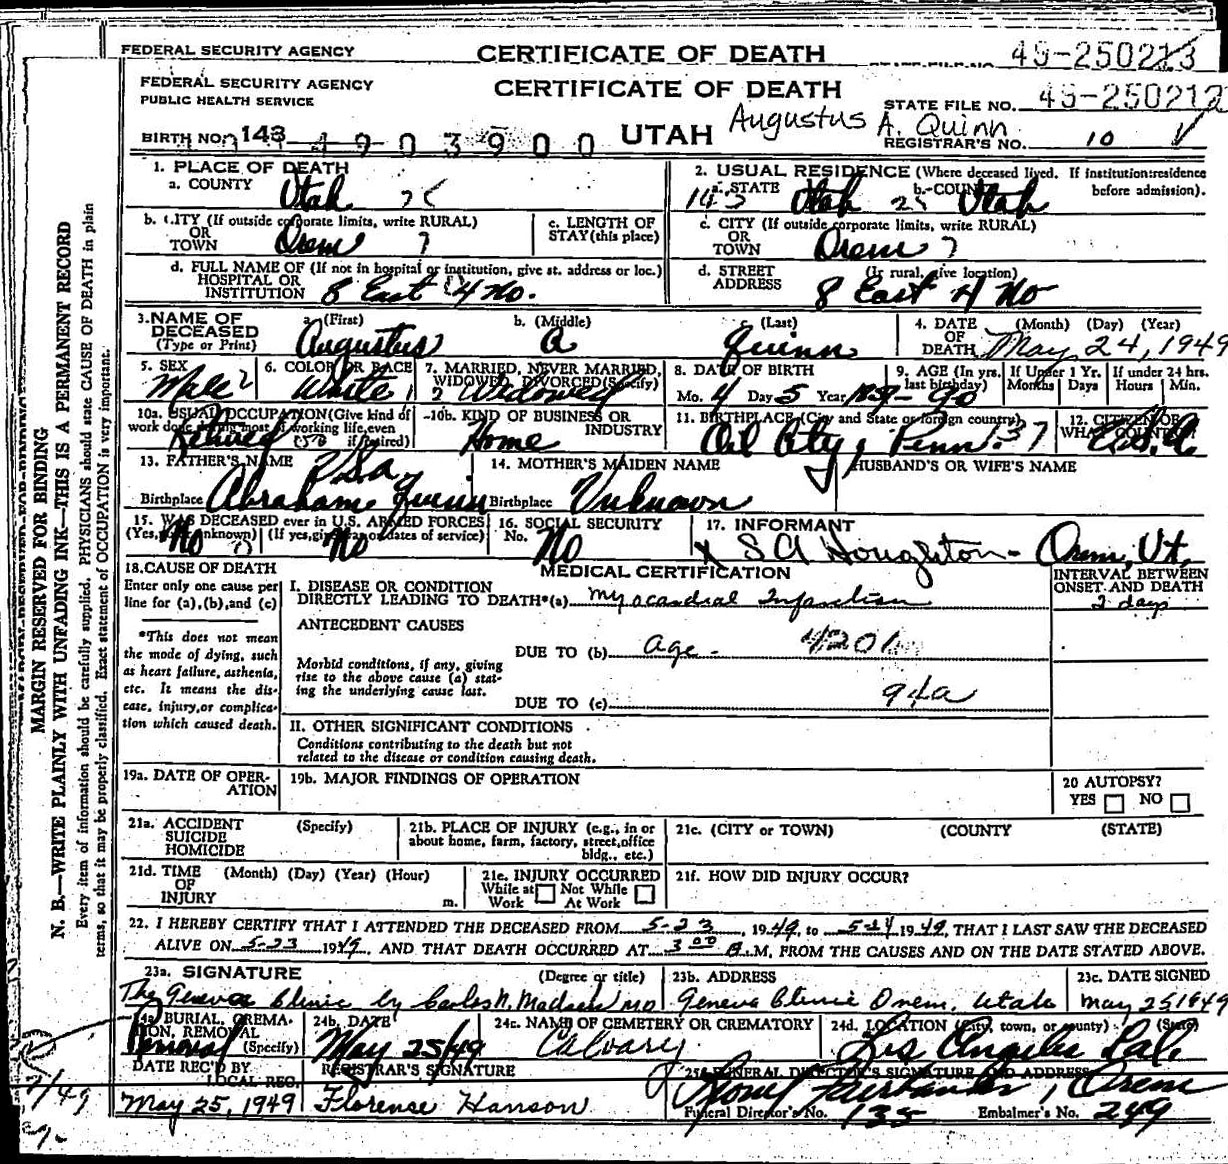 FEDERAL SECURITY AGENCY CERTIFICATE OF DEATH STATE FILE NO. 49-250213
FEDERAL SECURITY AGENCY CERTIFICATE OF DEATH
PUBLIC HEALTH SERVICE STATE FILE NO. 49-250212
BIRTH NO. 143 4903900 UTAH Augustus A. Quinn REGISTRAR'S NO. 10
1. PLACE OF DEATH 2. USUAL RESIDENCE (Where deceased lived. If institution: residence before admission).
a. COUNTY Utah a. STATE Utah b. COUNTY Utah
b. CITY (If outside corporate limits, write RURAL) OR TOWN Orem 7 c. LENGTH OF STAY (this place) c. CITY (If outside corporate limits, write RURAL) OR TOWN Orem 7
d. FULL NAME OF (If not in hospital or institution, give st. address or loc.) HOSPITAL OR INSTITUTION 8 East 4 No. d. STREET ADDRESS (If rural, give location) 8 East 4 No
3. NAME OF DECEASED (Type or Print) a. (First) Augustus b. (Middle) A c. (Last) Quinn 4. DATE OF DEATH (Month) (Day) (Year) May 24, 1949
5. SEX Male 2 6. COLOR OR RACE White 1 7. MARRIED, NEVER MARRIED, WIDOWED, DIVORCED (Specify) Widowed 8. DATE OF BIRTH Mo. 4 Day 5 Year 9. AGE (In yrs. last birthday) 90 If Under 1 Yr. Months Days If under 24 hrs. Hours Min.
10a. USUAL OCCUPATION (Give kind of work done during most of working life, even if retired) Retired 10b. KIND OF BUSINESS OR INDUSTRY Home 11. BIRTHPLACE (City and State or foreign country) Oil City, Penn. 37 12. CITIZEN OF WHAT COUNTRY? U.S.A.
13. FATHER'S NAME Abraham Quinn 14. MOTHER'S MAIDEN NAME Unknown HUSBAND'S OR WIFE'S NAME
Birthplace Birthplace
15. WAS DECEASED ever in U.S. ARMED FORCES (Yes, no, unknown) No (If yes, give war or dates of service) No 16. SOCIAL SECURITY No. No 17. INFORMANT X S A Houghton - Orem, Ut.
18. CAUSE OF DEATH MEDICAL CERTIFICATION INTERVAL BETWEEN ONSET AND DEATH
Enter only one cause per line for (a), (b), and (c)
I. DISEASE OR CONDITION DIRECTLY LEADING TO DEATH*(a) Myocardial Infarction 2 days
*This does not mean the mode of dying, such as heart failure, asthenia, etc. It means the disease, injury, or complication which caused death.
ANTECEDENT CAUSES
DUE TO (b) Age - 4201
Morbid conditions, if any, giving rise to the above cause (a) stating the underlying cause last.
DUE TO (c) 94a
II. OTHER SIGNIFICANT CONDITIONS
Conditions contributing to the death but not related to the disease or condition causing death.
19a. DATE OF OPERATION 19b. MAJOR FINDINGS OF OPERATION 20 AUTOPSY? YES NO
21a. ACCIDENT SUICIDE HOMICIDE (Specify) 21b. PLACE OF INJURY (e.g., in or about home, farm, factory, street, office bldg., etc.) 21c. (CITY or TOWN) (COUNTY) (STATE)
21d. TIME OF INJURY (Month) (Day) (Year) (Hour) m. 21e. INJURY OCCURRED While at Work Not While At Work 21f. HOW DID INJURY OCCUR?
22. I HEREBY CERTIFY THAT I ATTENDED THE DECEASED FROM 5-23, 1949, to 5-24 1949, THAT I LAST SAW THE DECEASED
ALIVE ON 5-23 1949, AND THAT DEATH OCCURRED AT 3 00 A.M, FROM THE CAUSES AND ON THE DATE STATED ABOVE.
23a. SIGNATURE (Degree or title) 23b. ADDRESS 23c. DATE SIGNED
The Geneva Clinic by Carlos N. Madsen M.D. Geneva Clinic Orem, Utah May 25 1949
24a. BURIAL, CREMATION, REMOVAL (Specify) Removal 24b. DATE May 25/49 24c. NAME OF CEMETERY OR CREMATORY Calvary 24d. LOCATION (City, town, or county) (State) Los Angeles Cal.
DATE REC'D BY LOCAL REG. May 25, 1949 REGISTRAR'S SIGNATURE Florense Hanson 25. FUNERAL DIRECTOR'S SIGNATURE AND ADDRESS Fairbanks, Orem
Funeral Director's No. 135 Embalmer's No. 249
MARGIN RESERVED FOR BINDING
N. B.—WRITE PLAINLY WITH UNFADING INK—THIS IS A PERMANENT RECORD
Every item of information should be carefully supplied. PHYSICIANS should state CAUSE OF DEATH in plain
terms, so that it may be properly classified. Exact statement of OCCUPATION is very important.